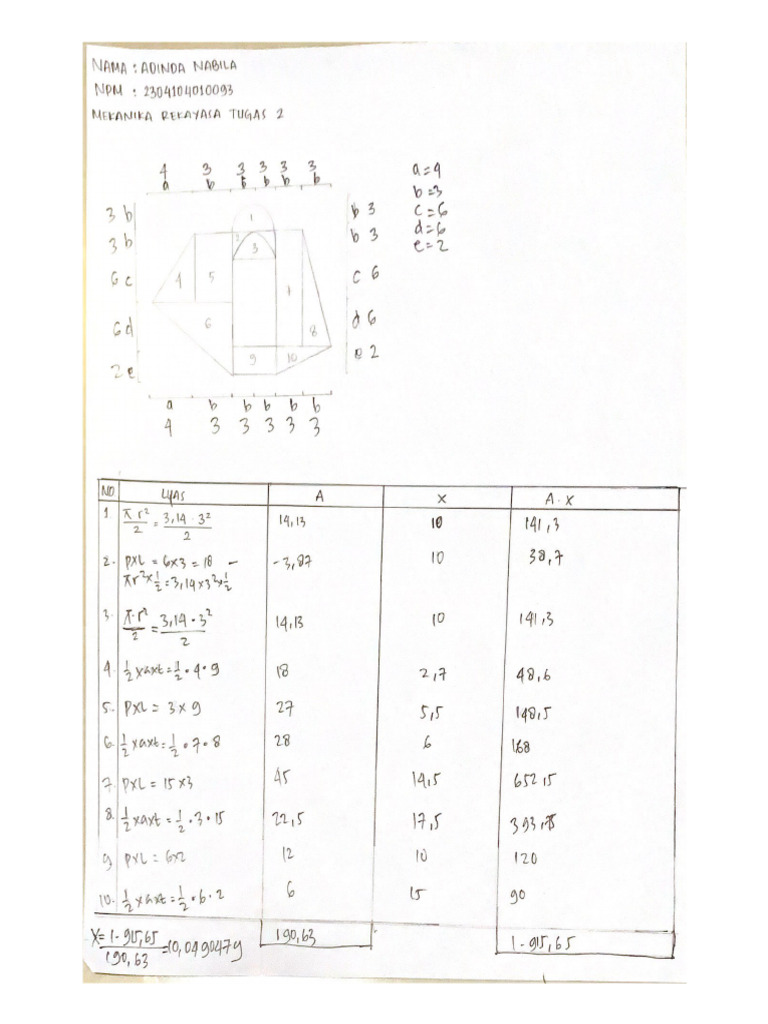 NAMA : ADINDA NABILA
NPM : 2304104010093
MEKANIKA REKAYASA TUGAS 2
4 3 3 3 3 3
a b b b b b
a = 4
b = 3
c = 6
d = 6
e = 2
3 b
3 b
6 c
6 d
2 e
1
2
3
4
5
6
7
8
9
10
b 3
b 3
c 6
d 6
e 2
a b b b b b
4 3 3 3 3 3
NO LUAS A X A · X
1. π·r²/2 = 3,14 · 3²/2 14,13 10 141,3
2. PXL = 6X3 = 18 - -3,87 10 38,7
πr²x1/2 = 3,14x3²x1/2
3. π·r²/2 = 3,14 · 3²/2 14,13 10 141,3
4. 1/2 xaxt = 1/2 · 4 · 9 18 2,7 48,6
5. PXL = 3 X 9 27 5,5 148,5
6. 1/2 xaxt = 1/2 · 7 · 8 28 6 168
7. PXL = 15 X3 45 14,5 652,5
8. 1/2 xaxt = 1/2 · 3 · 15 22,5 17,5 393,75
9 PXL = 6X2 12 10 120
10. 1/2 xaxt = 1/2 · 6 · 2 6 15 90
X = 1.915,65/190,63 = 10,0490479 190,63 1.915,65